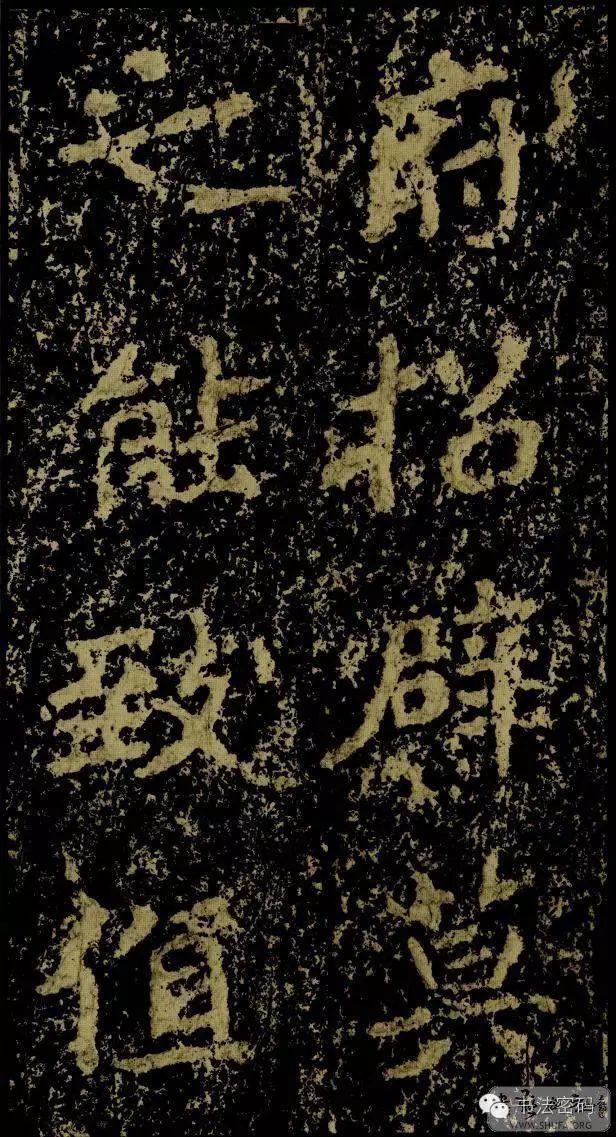 府招辟莫
之能致值
书法密码
WWW.SHUFA.ORG